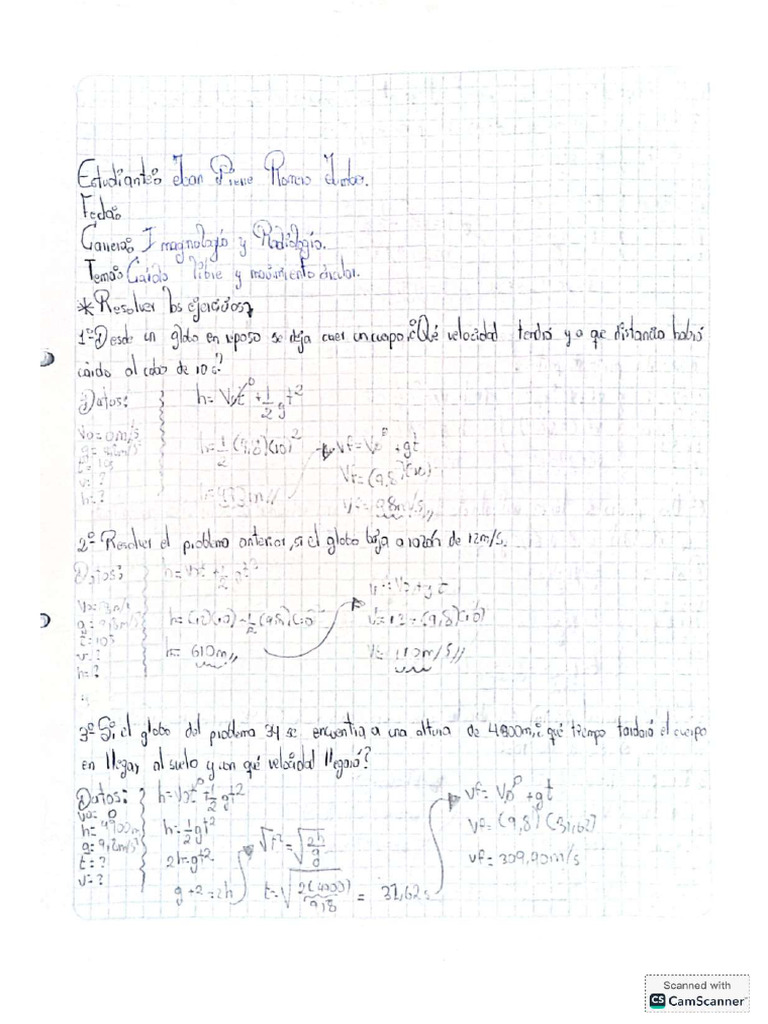 Estudiante: Jean Pierre Romero
Fecha:
Carrera: Imagnología y Radiología.
Tema: Caída libre y movimiento circular.
* Resolver los ejercicios
1º Desde un globo en reposo se deja caer un cuerpo ¿Qué velocidad tendrá y a que distancia habrá
caído al cabo de 10 s?
Datos:
Vo = 0m/s
g = 9,8m/s²
v = ?
h = ?
h = Vot⁰ + 1/2 gt²
h = 1/2 (9,8)(10)²
Vf = Vo⁰ + gt
Vf = (9,8)(10)
Vf = 98m/s
2º Resolver el problema anterior, si el globo baja a razón de 12m/s.
Datos:
g = 9,8m/s²
t = 10s
v = ?
h = ?
h = Vot + 1/2 gt²
h = (12)(10) + 1/2 (9,8)(10)²
h = 610m
Vf = Vo + gt
Vf = 12 + (9,8)(10)
Vf = 110m/s
3º Si el globo del problema 34 se encuentra a una altura de 4900m, ¿ qué tiempo tardará el cuerpo
en llegar al suelo y con qué velocidad llegará?
Datos:
Vo = 0
h = 4900m
g = 9,8m/s²
t = ?
v = ?
h = Vot⁰ + 1/2 gt²
h = 1/2 gt²
2h = gt²
gt2 = 2h
√t² = √2h/g
t = √2(4900)/9,8 = 31,62s
Vf = Vo⁰ + gt
Vf = (9,8) (31,62)
Vf = 309,90m/s
Scanned with
CS CamScanner